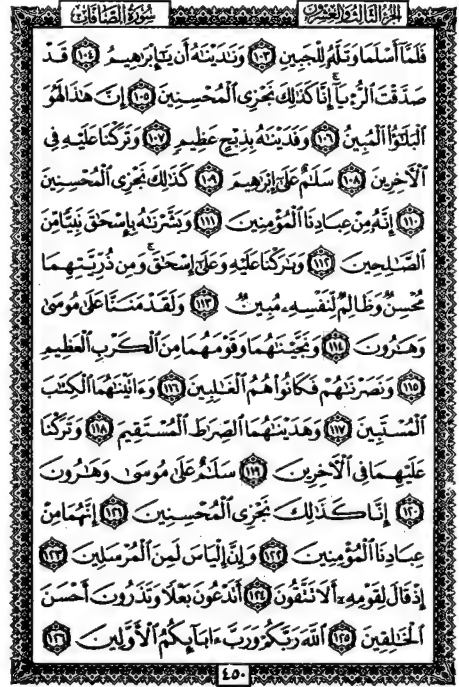 سُورَةُ الصَّافَّاتِ الجُزْءُ الثَّالِثُ وَالعِشْرُونَ
فَلَمَّآ أَسْلَمَا وَتَلَّهُۥ لِلْجَبِينِ ﴿١٠٣﴾ وَنَٰدَيْنَٰهُ أَن يَٰٓإِبْرَٰهِيمُ ﴿١٠٤﴾ قَدْ
صَدَّقْتَ ٱلرُّءْيَآ ۚ إِنَّا كَذَٰلِكَ نَجْزِى ٱلْمُحْسِنِينَ ﴿١٠٥﴾ إِنَّ هَٰذَا لَهُوَ
ٱلْبَلَٰٓؤُا۟ ٱلْمُبِينُ ﴿١٠٦﴾ وَفَدَيْنَٰهُ بِذِبْحٍ عَظِيمٍ ﴿١٠٧﴾ وَتَرَكْنَا عَلَيْهِ فِى
ٱلْءَاخِرِينَ ﴿١٠٨﴾ سَلَٰمٌ عَلَىٰٓ إِبْرَٰهِيمَ ﴿١٠٩﴾ كَذَٰلِكَ نَجْزِى ٱلْمُحْسِنِينَ
﴿١١٠﴾ إِنَّهُۥ مِنْ عِبَادِنَا ٱلْمُؤْمِنِينَ ﴿١١١﴾ وَبَشَّرْنَٰهُ بِإِسْحَٰقَ نَبِيًّا مِّنَ
ٱلصَّٰلِحِينَ ﴿١١٢﴾ وَبَٰرَكْنَا عَلَيْهِ وَعَلَىٰٓ إِسْحَٰقَ ۚ وَمِن ذُرِّيَّتِهِمَا
مُحْسِنٌ وَظَالِمٌ لِّنَفْسِهِۦ مُبِينٌ ﴿١١٣﴾ وَلَقَدْ مَنَنَّا عَلَىٰ مُوسَىٰ
وَهَٰرُونَ ﴿١١٤﴾ وَنَجَّيْنَٰهُمَا وَقَوْمَهُمَا مِنَ ٱلْكَرْبِ ٱلْعَظِيمِ
﴿١١٥﴾ وَنَصَرْنَٰهُمْ فَكَانُوا۟ هُمُ ٱلْغَٰلِبِينَ ﴿١١٦﴾ وَءَاتَيْنَٰهُمَا ٱلْكِتَٰبَ
ٱلْمُسْتَبِينَ ﴿١١٧﴾ وَهَدَيْنَٰهُمَا ٱلصِّرَٰطَ ٱلْمُسْتَقِيمَ ﴿١١٨﴾ وَتَرَكْنَا
عَلَيْهِمَا فِى ٱلْءَاخِرِينَ ﴿١١٩﴾ سَلَٰمٌ عَلَىٰ مُوسَىٰ وَهَٰرُونَ
﴿١٢٠﴾ إِنَّا كَذَٰلِكَ نَجْزِى ٱلْمُحْسِنِينَ ﴿١٢١﴾ إِنَّهُمَا مِنْ
عِبَادِنَا ٱلْمُؤْمِنِينَ ﴿١٢٢﴾ وَإِنَّ إِلْيَاسَ لَمِنَ ٱلْمُرْسَلِينَ ﴿١٢٣﴾
إِذْ قَالَ لِقَوْمِهِۦٓ أَلَا تَتَّقُونَ ﴿١٢٤﴾ أَتَدْعُونَ بَعْلًا وَتَذَرُونَ أَحْسَنَ
ٱلْخَٰلِقِينَ ﴿١٢٥﴾ ٱللَّهَ رَبَّكُمْ وَرَبَّ ءَابَآئِكُمُ ٱلْأَوَّلِينَ ﴿١٢٦﴾
٤٥٠